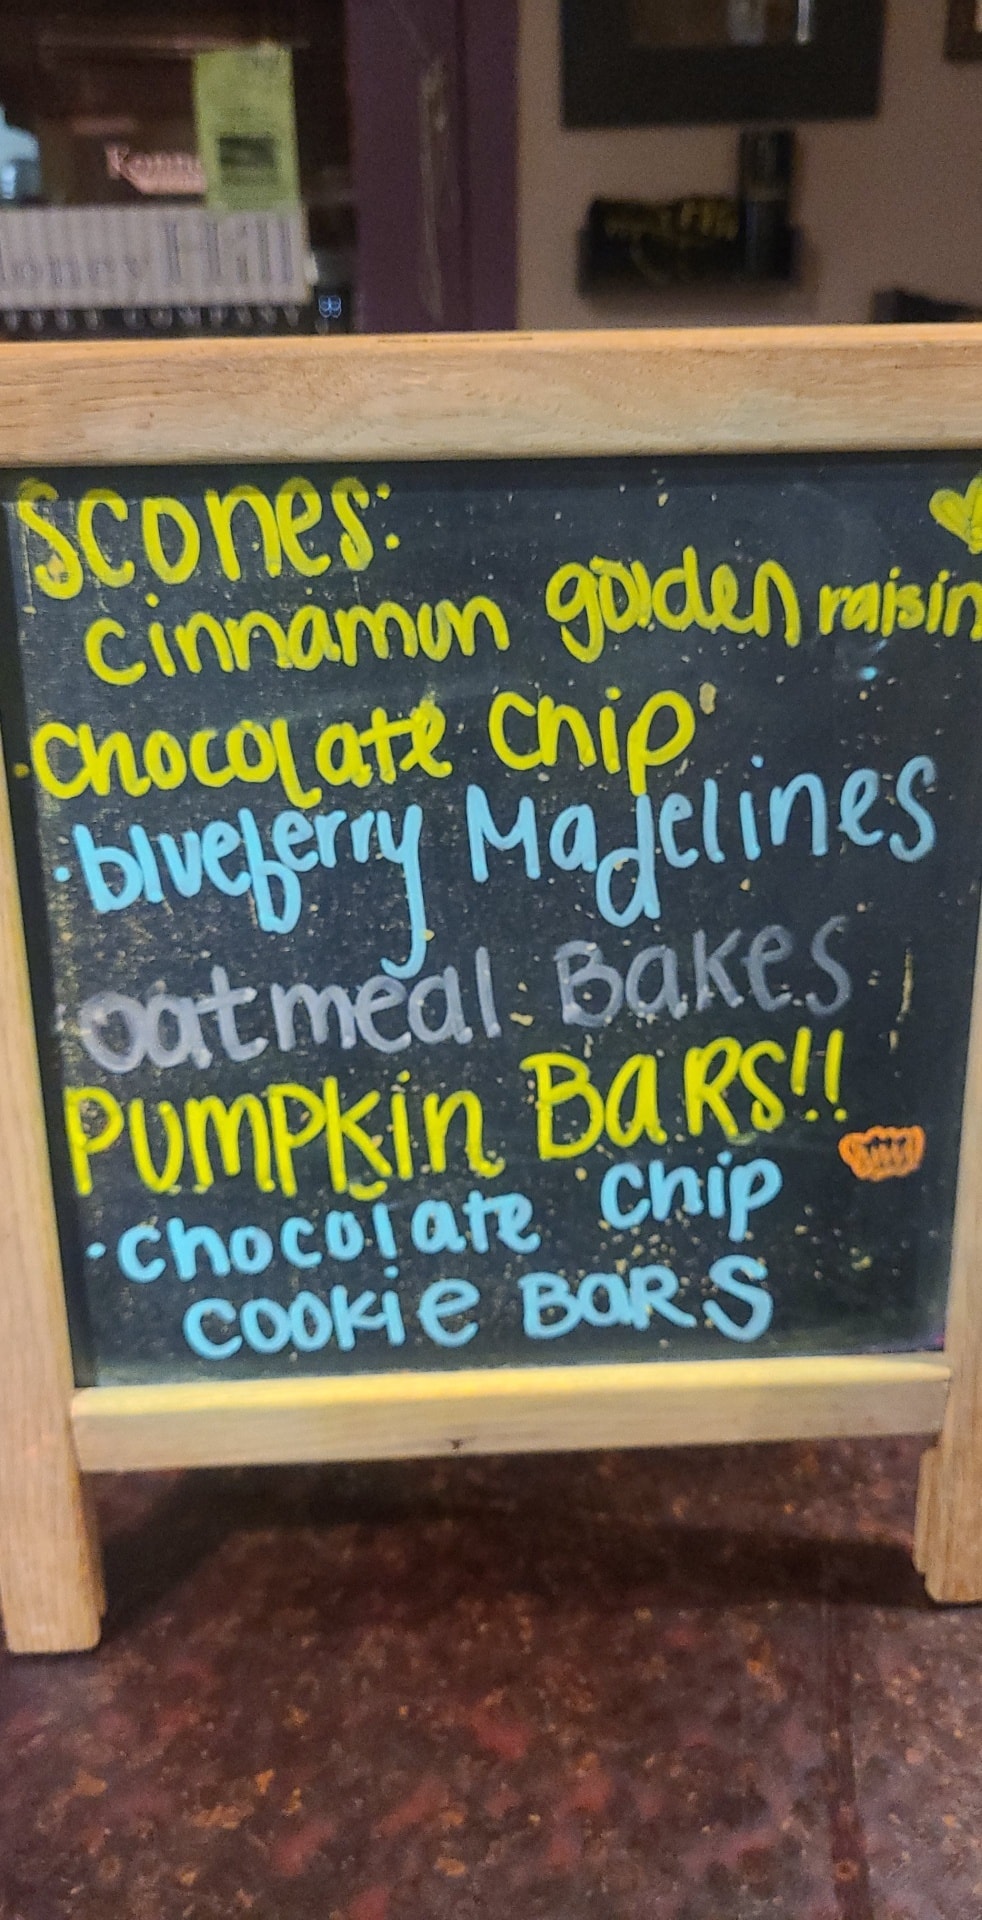 Honey Hill
Scones:
cinnamon golden raisin
·Chocolate Chip
·blueberry Madelines
oatmeal Bakes
Pumpkin Bars!!
·chocolate chip
cookie Bars